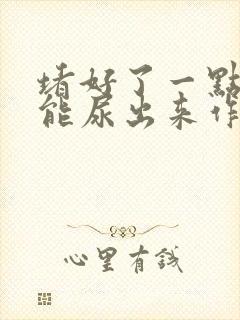 堵好了一點
能尿出来作
心里有銭